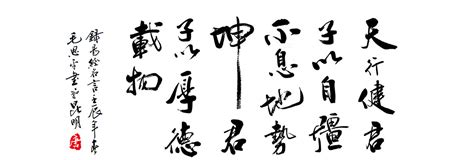 天行健君
子以自彊
不息地勢
坤君
子以厚德
載物
錄易經名言壬辰年春
毛思書昆明